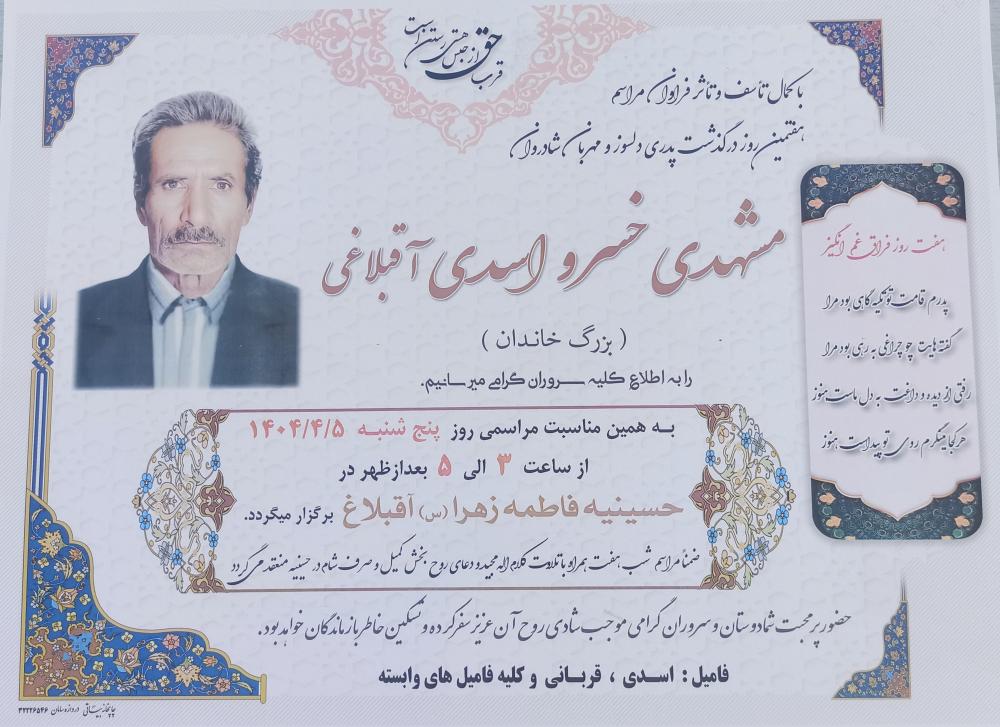 با کمال تأسف و تأثر فراوان مراسم
هفتمین روز درگذشت پدری دلسوز و مهربان شادروان
مشهدی خسرو اسدی آقبلاغی
( بزرگ خاندان )
را به اطلاع کلیه سروران گرامی میرسانیم.
به همین مناسبت مراسمی روز پنج شنبه ۱۴۰۴/۴/۵
از ساعت ۳ الی ۵ بعدازظهر در
حسینیه فاطمه زهرا (س) آقبلاغ برگزار میگردد.
ضمناً مراسم شب هفت همراه با تلاوت کلام اله مجید و دعای روح بخش کمیل و صرف شام در حسینیه منعقد می گردد
حضور پر محبت شما دوستان و سروران گرامی موجب شادی روح آن عزیز سفر کرده و تسکین خاطر بازماندگان خواهد بود.
فامیل : اسدی ، قربانی و کلیه فامیل های وابسته
هفت روز فراق غم انگیز
پدرم قامت تو تکیه گاهی بود مرا
گفته هایت چو چراغی به رهی بود مرا
رفتی از دیده و داغت به دل ماست هنوز
هر کجا مینگرم روی تو پیداست هنوز
دروازه سامان ۳۲۲۲۶۵۴۶